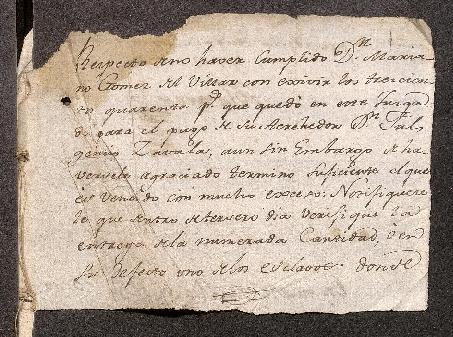 Respecto â no haver Cumplido Dn. Maria
no Gomez del Villar con exivir los trecien
tos, quarenta ps. que quedò en este Juzga
do para el pago de su Acrehedor Dn.
Zavala, aun sin Embargo de ha
versele agraciado termino suficiente el que
es vensido con mucho exceso: Notifiquese
le que dentro de tersero dia verifique la
entrega de la numerada Cantidad, ô en
su Defecto uno de los esclavos donde